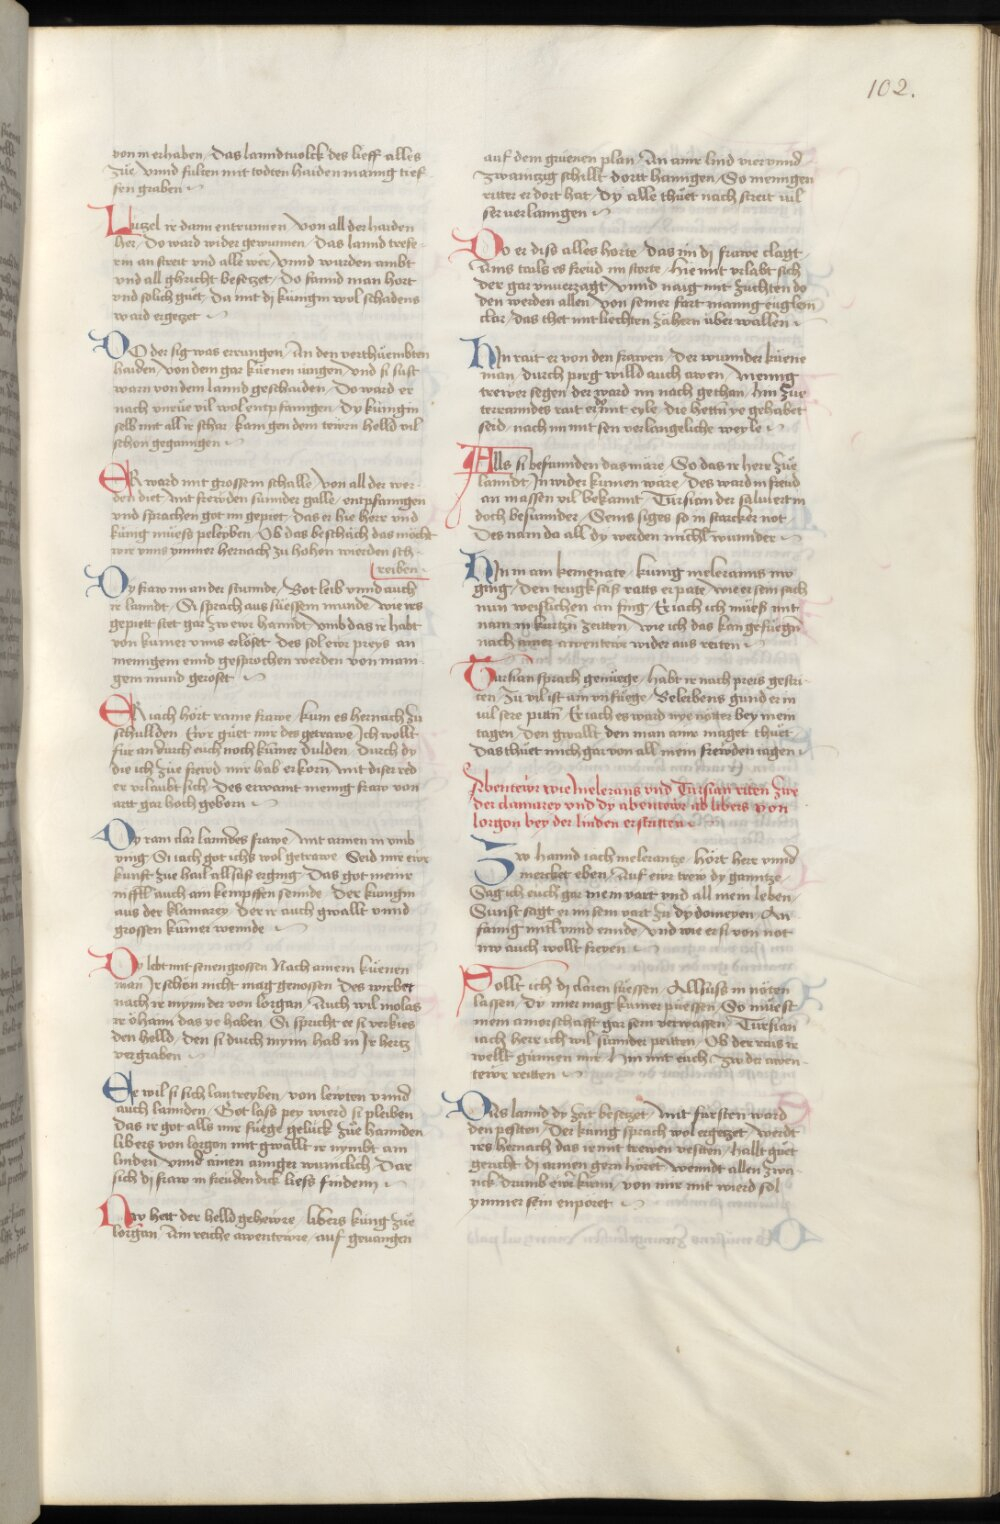 102.
von in erhaben / Das lanndtvolck des lieff alles
zue / vnnd fulten mit todten haiden manig tief
fen graben
Lutzel ir dann entrunnen / Von all der haiden
her / Do ward wider gewunnen / Das lannd trefe-
rin an streit vnd alle wer / Vnnd wurden ambt
vnd all ghricht besetzet / Do fannd man hort
vnd solich guet / Da mit di kunigin wol schadens
ward ergetzet
DO der sig was errungen / An den verthuembten
haiden / Von dem gar kuenen iungen / Vnd si sust
warn von dem lannd geschaiden / Do ward er
nach vil wol entpfanngen / Dy kunigin
selb mit all ir schar / kam gen dem tewrn helld vil
schon geganngen
ER ward mit grossem schalle / von all der wer-
den diet / Mit frewden sunnder galle / entpfanngen
vnd sprachen got im gepiet / Das er hie herr vnd
kunig muess peleyben / Ob das beschach das mocht
wir vnns ymmer hernach zu hohen wierden sch-
reiben
Dy fraw im an der stunnde / Bot leib vnnd auch
ir lanndt / Si sprach aus suessem munde / wie irs
gepiett stet gar zw ewr hanndt / Vmb das ir habt
von kumer vnns erloset / des sol ewr preys an
mennigem ennd gesprochen werden von mani-
gem mund geroset
ER iach hort raine frawe / kum es hernach zu
schullden / Ewr guet mir des getrawe / Ich wollt
fur an durch euch noch kumer dulden / Durch dy
die ich zue frewd mir hab erkorn / Mit diser red
er vrlaubt sich / Des erwaint mennig fraw von
artt gar hoch geborn
Dy ram clar lanndes frawe / Mit armen in vmb
ving / Si iach got ichs wol getrawe / Seid mir ewr
kunft zue hail allsuss erging / Das got meinr
nifftl auch ain kempffen sennde / Der kunigin
aus der klamarey / Der ir auch gwallt vnnd
grossen kumer wennde
Dy lebt mit senen grossen / Nach ainem kuenen
man / Ir schon nicht mag genossen / Des wirbet
nach ir mynn der von lorgan / Auch wil molas
ir oham das ye haben / Si spricht ee si verkies
den helld / den si durch mynn hab in Ir hertz
vergraben
Ee wil si sich lan treyben / von lewten vnnd
auch lannden / Got lass pey wierd si pleiben
Das ir got alls mir fuege geluck zue hannden
libers von lorgon mit gwallt ir nymbt am
linden / Vnnd ainen annger wuniclich / Dar
sich di fraw in freuden dick liess finden
Nw hett der helld gehewre / libers kunig zue
lorgan / Ain reiche awentewre / auf geuangen
auf dem gruenen plan / An ainr lind viervnnd
zwaintzig schillt dortt hanngen / So mennigen
ritter er dort hat / Dy alle thuet nach streit vil
ser verlanngen
Do er diss alles horte / das im di frawe clagt
Ains tails es freud im storte / Hie mit vrlabt sich
der gar vnuerzagt / Vnnd naig mit zuchten do
den werden allen / Von seiner fart manig euglein
clar / das thet mit liechten zahern vber wallen
Hin rait er von den frawen / Der wunnder kuene
man / durch perg willd auch awen / Mennig
trewer segen der ward im nach gethan / hin zue
terramndes rait er do mit eyle / die hettn ye gehabet
seid / nach im mit sen verlangeliche weyle
Alls si befannden das mare / So das ir herr zue
lanndt / In wider kumen ware / Des ward in freud
an massen vil bekannt / Tursian der saluiert in
doch besunnder / Seins siges so in starcker not
Des nam da all dy werden michl wunnder
Hin in ain kemenate / kunig meleranns nw
ging / Den trugksass ratts er pate / wie er sein sach
nun weislichen an fing / Er iach ich muess mit
nam in kurtzn zeitten / Wie ich das kan gefuegn
nach awentewr wider aus reiten
Tursian sprach genuege / habt ir nach preis gestri-
ten / Zu vil ist ain vnfuege / Beleibens gund er in
vil sere pittn / Er iach es ward nye notter bey mein
tagen / Den gwallt den man ainr maget thuet
Das thuet mich gar von all mein frewden iagen
Abentewr wie Melerans vnd Tursian riten zwe
der clamarey vnd dy abentewr ab libers von
lorgon bey der linden erstritten
Zw hannd iach melerantze / hort herr vnnd
mercket eben / Auf ewr trew dy ganntze
Sag ich euch gar mein vart vnd all mein leben
Sunst sagt er im sein vart zu dy domeyen / An
fanng mitl vnnd ennde / Vnd wie er si von not
nw auch wollt freyen
Sollt ich di claren suessen / Allsuss in noten
lassen / Dy mier mag kumer puessen / So muest
mein amorschafft gar sein verwassen / Tursian
iach herr ich wil sunnder peitten / Ob der rais ir
wellt gunnen mir / Hin mit euch zw der awen-
tewr reitten
Das lannd dy zeit besetzet / Mit fursten ward
den pessten / Der kunig sprach wol ergetzet / werdt
irs hernach das ir mit trewen vessten / hallt guet
gericht di armen gern horet / wenndt allen zwi-
nck / Drumb ewr kunn / von mir mit wierd sol
ymmer sein enporet